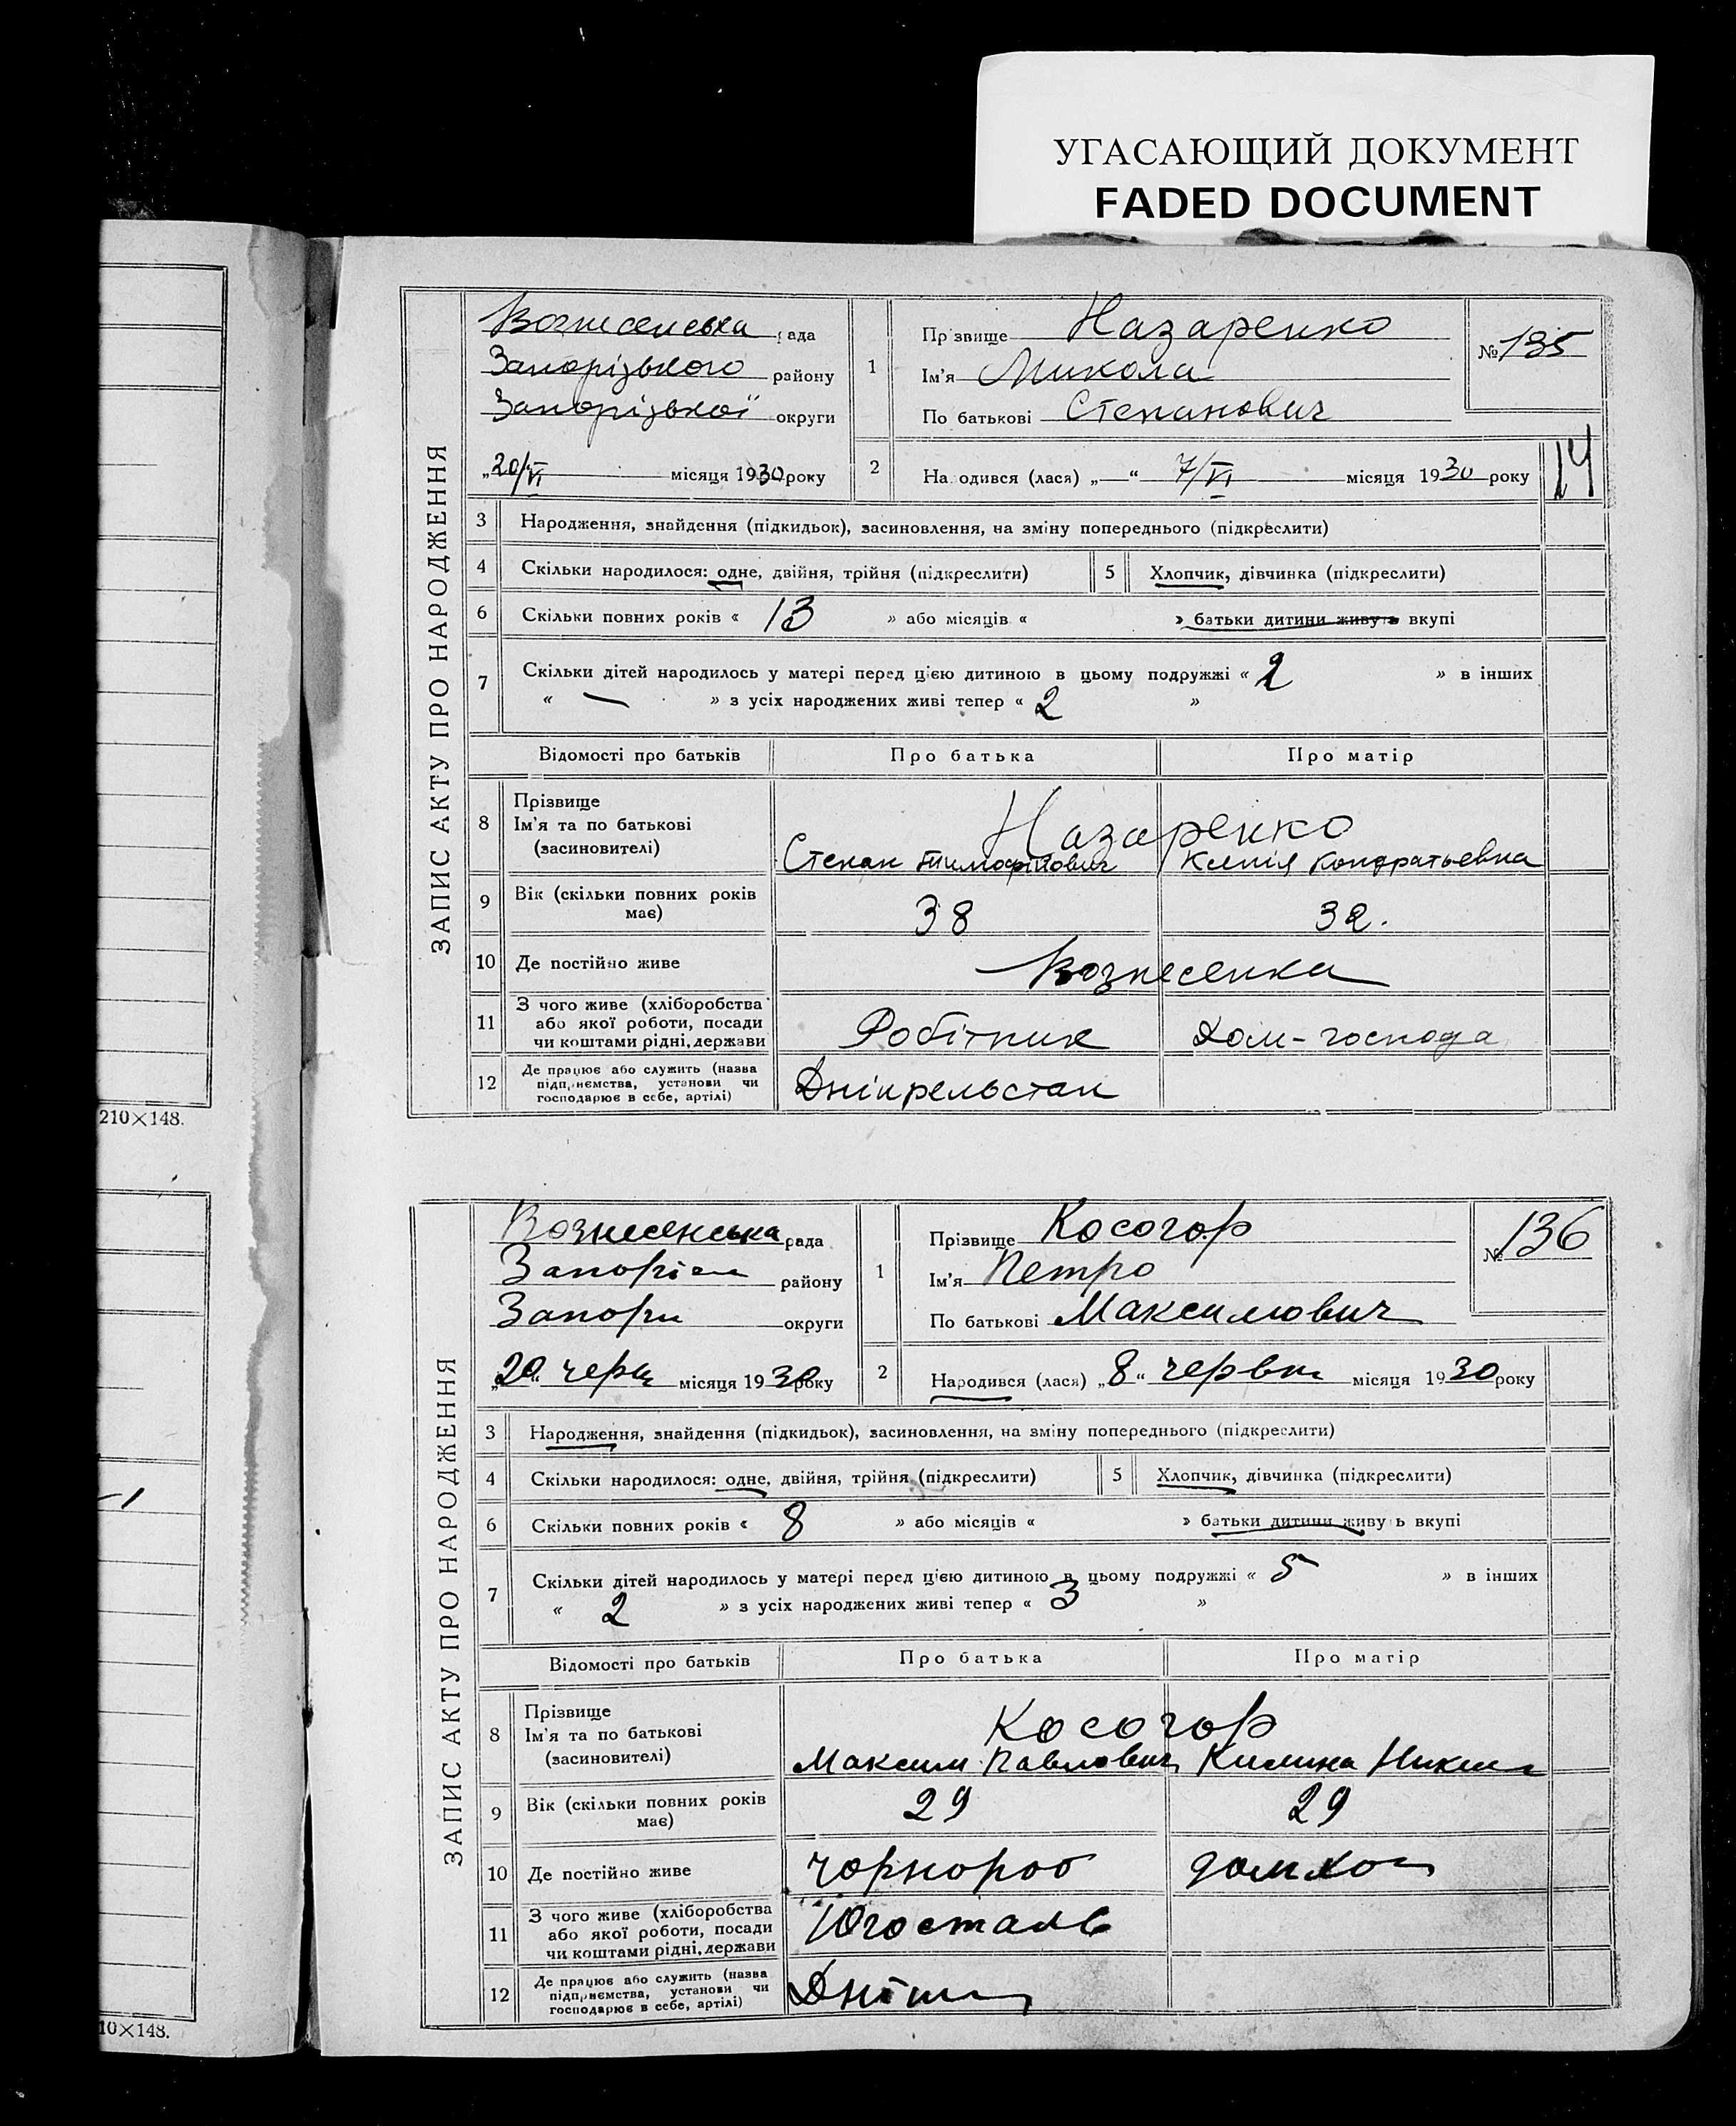 УГАСАЮЩИЙ ДОКУМЕНТ
FADED DOCUMENT
ЗАПИС АКТУ ПРО НАРОДЖЕННЯ
Вознесенська рада
Запорізького району
Запорізької округи
„20/VI місяця 1930 року
1
Прізвище Назаренко
Ім'я Микола
По батькові Степанович
№ 135
2 Народився (лася) „—“ 7/VI місяця 1930 року
14
3 Народження, знайдення (підкидьок), засиновлення, на зміну попереднього (підкреслити)
4 Скільки народилося: одне, двійня, трійня (підкреслити) 5 Хлопчик, дівчинка (підкреслити)
6 Скільки повних років « 13 » або місяців « » батьки дитини живуть вкупі
7 Скільки дітей народилось у матері перед цією дитиною в цьому подружжі « 2 » в інших
« — » з усіх народжених живі тепер « 2 »
Відомості про батьків Про батька Про матір
8 Прізвище
Ім'я та по батькові
(засиновителі)
Назаренко
Степан Тимофійович Кондратьевна
9 Вік (скільки повних років
має) 38 32.
10 Де постійно живе Вознесенка
11 З чого живе (хліборобства
або якої роботи, посади
чи коштами рідні, держави
Робітник Дом-господа
12 Де працює або служить (назва
підприємства, установи чи
господарює в себе, артілі)
Дніпрельстан
210×148.
ЗАПИС АКТУ ПРО НАРОДЖЕННЯ
Вознесенська рада
району
округи
„20“ місяця 1930 року
1
Прізвище Косогор
Ім'я Петро
По батькові Максимович
№ 136
2 Народився (лася) „8“ червня місяця 1930 року
3 Народження, знайдення (підкидьок), засиновлення, на зміну попереднього (підкреслити)
4 Скільки народилося: одне, двійня, трійня (підкреслити) 5 Хлопчик, дівчинка (підкреслити)
6 Скільки повних років « 8 » або місяців « » батьки дитини живуть вкупі
7 Скільки дітей народилось у матері перед цією дитиною в цьому подружжі « 5 » в інших
« 2 » з усіх народжених живі тепер « 3 »
Відомості про батьків Про батька Про матір
8 Прізвище
Ім'я та по батькові
(засиновителі)
Косогор
Максим Павлович Килина
9 Вік (скільки повних років
має) 29 29
10 Де постійно живе чорнороб домхоз
11 З чого живе (хліборобства
або якої роботи, посади
чи коштами рідні, держави
Югосталь
12 Де працює або служить (назва
підприємства, установи чи
господарює в себе, артілі)
10×148.